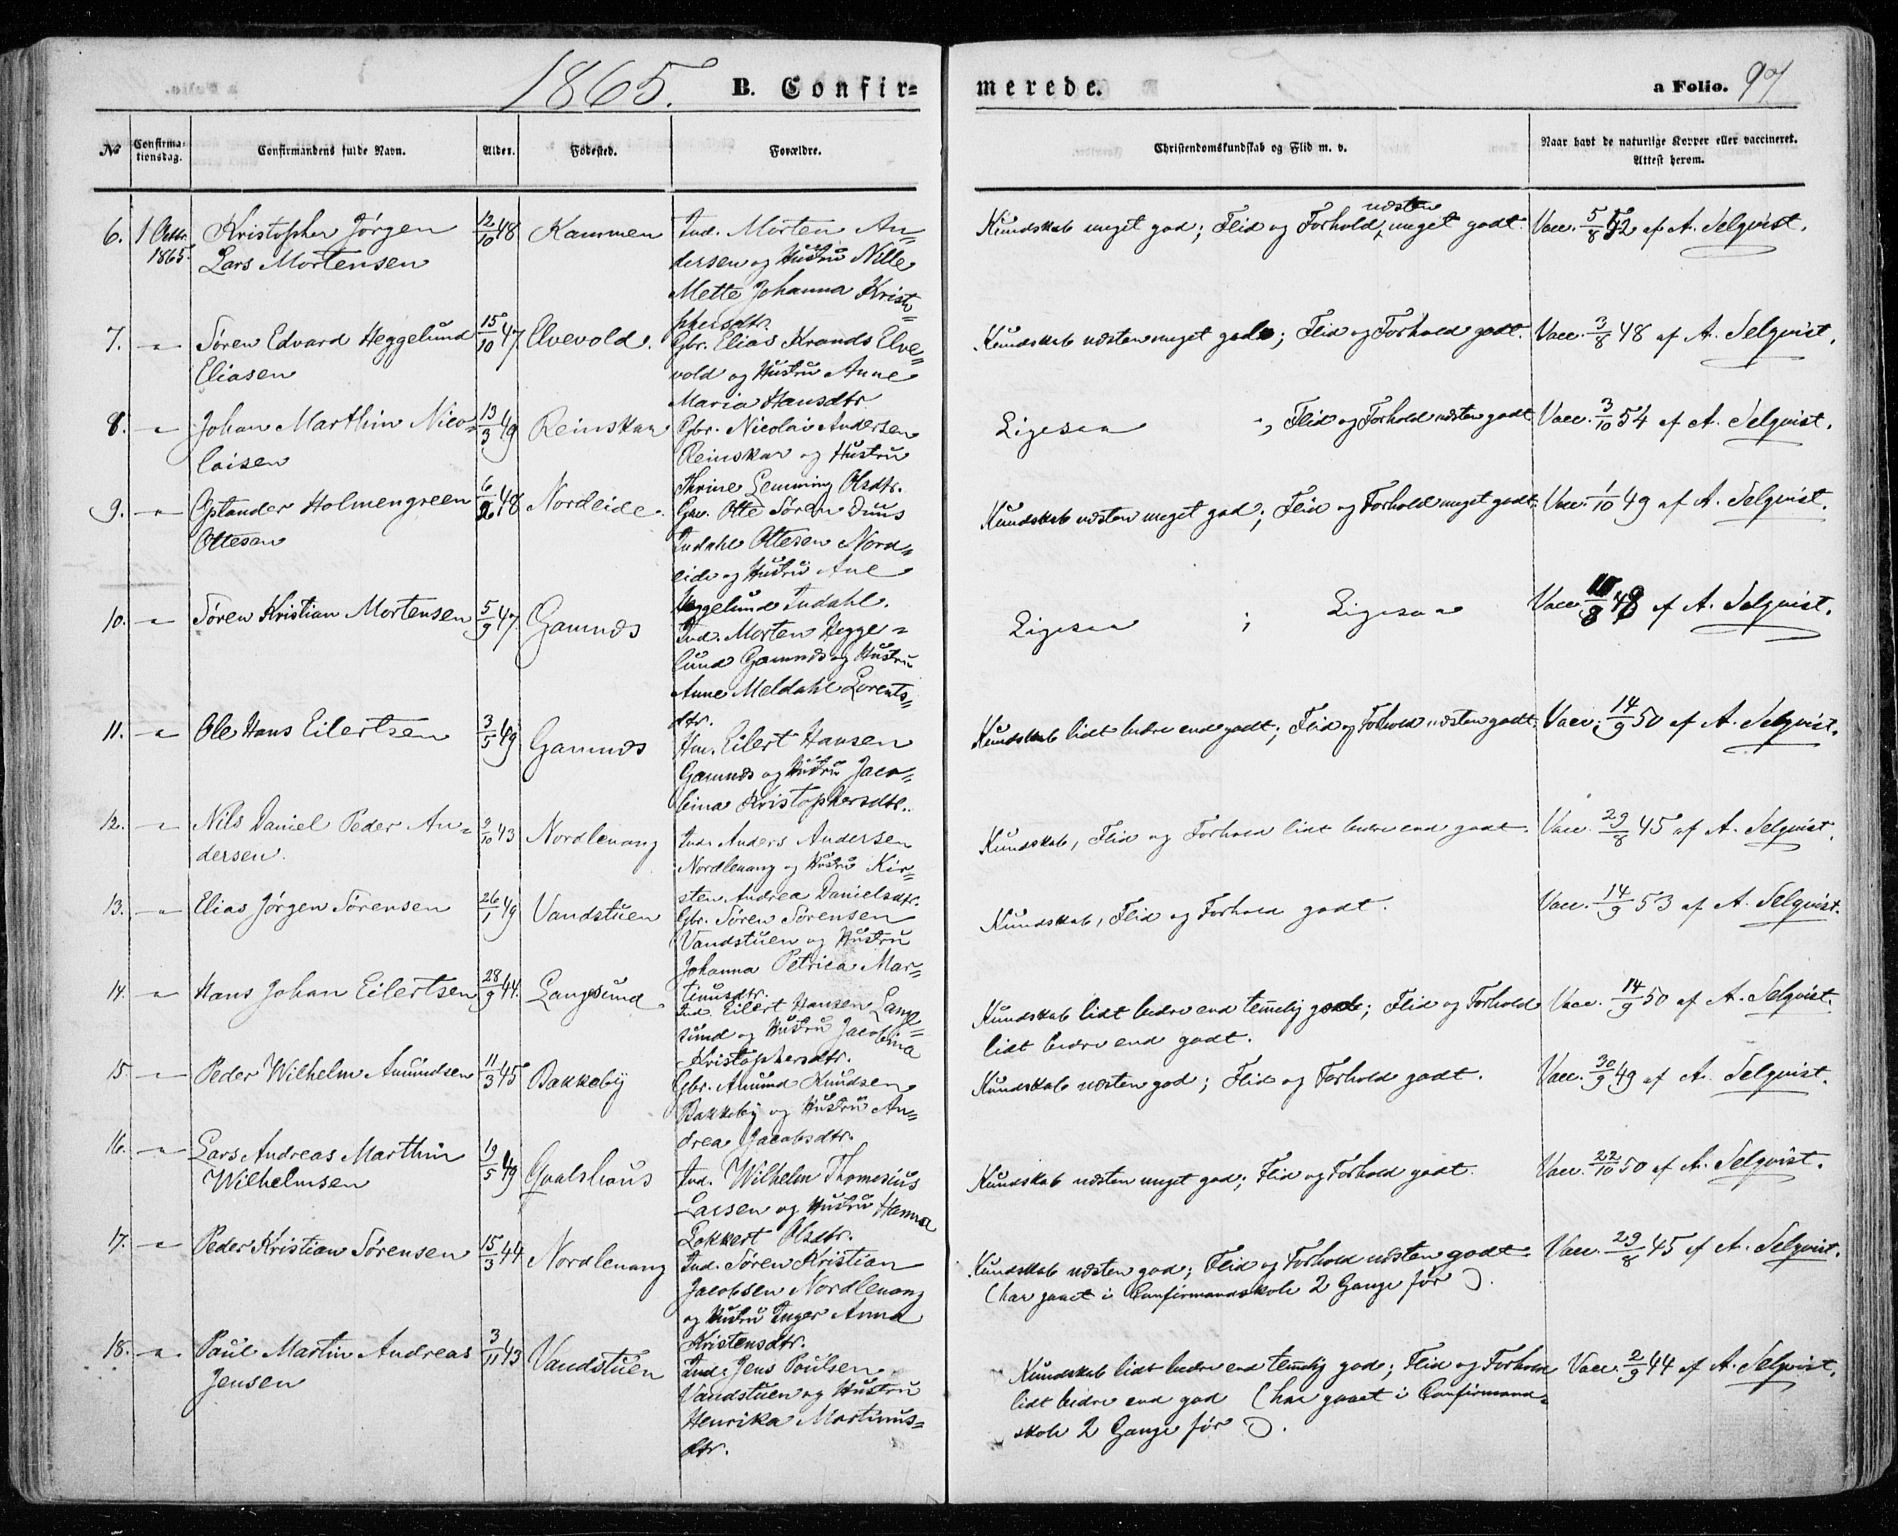 1865. B. Confir-
merede. a Folio. 97
No Confirma-tionsdag. Confirmandens fulde Navn. Alder. Fødested. Forældre. Christendomskundskab og Flid m. v. Naar havt de naturlige Kopper eller vaccineret. Attest herom.
6. 1 Octbr. 1865. Kristopher Jørgen 12/10 48 Kammen Ind. Morten An-
Lars Mortensen dersen og Hustru Nille
Mette Johanna Kristo-
phersdtr.
Kundskab meget god; Flid og Forhold næsten meget godt. Vacc. 5/8 52 af A. Selqvist.
7. " Søren Edvard Heggelund 15/10 47 Elvevold. Gbr. Elias Hrands Elve-
Eliasen vold og Hustru Anne
Maria Hansdtr
Kundskab næsten meget god; Flid og Forhold godt. Vacc. 3/8 48 af A. Selqvist.
8. " Johan Marthin Nico- 13/3 49 Reinskar Gbr. Nicolai Andersen
laisen Reinskar og Hustru
Thrine Lemming Olsdtr.
Ligesaa ; Flid og Forhold næsten godt Vacc. 3/10 54 af A. Selqvist.
9. " Holmengreen 48 Nordeide. Otte Søren Duus
Ottesen Indahl Ottesen Nord-
eide og Hustru Ane
Heggelund Indahl.
Kundskab næsten meget god; Flid og Forhold meget godt. Vacc. 1/10 49 af A. Selqvist.
10. " Søren Kristian Mortensen 5/9 47. Gamnæs Ind. Morten Hegge-
lund Gamnæs og Hustru
Anne Meldahl Lorents-
dtr.
Ligesaa ; Ligesaa Vacc. 48 af A. Selqvist.
11. " Ole Hans Eilertsen 3/5 49 Gamnæs Hm. Eilert Hansen
Gamnæs og Hustru Jaco-
bina Kristophersdtr.
Kundskab lidt bedre end godt; Flid og Forhold næsten godt. Vacc. 14/9 50 af A. Selqvist.
12. " Nils Daniel Peder An- 43 Nordlenang Ind. Anders Andersen
dersen. Nordlenang og Hustru Kir-
sten Andrea Danielsdtr.
Kundskab, Flid og Forhold lidt bedre end godt. Vacc. 29/8 45 af A. Selqvist.
13. " Elias Jørgen Sørensen 26/1 49 Vandstuen Gbr. Søren Sørensen
Vandstuen og Hustru
Johanna Petrica Mar-
tinusdtr.
Kundskab, Flid og Forhold godt. Vacc. 14/9 53 af A. Selqvist.
14. " Hans Johan Eilertsen 28/9 44. Langsund. Ind. Eilert Hansen Lang-
sund og Hustru Jacobina
Kristophersdtr.
Kundskab lidt bedre end temelig god; Flid og Forhold Vacc. 14/9 50 af A. Selqvist.
lidt bedre end godt.
15 " Peder Wilhelm Amundsen 11/3 45 Bakkeby Gbr. Amund Knudsen
Bakkeby og Hustru An-
drea Jacobsdtr.
Kundskab næsten god; Flid og Forhold godt. Vacc. 30/9 49 af A. Selqvist.
16. " Lars Andreas Marthin 19/5 49 Gvalshaus Ind. Wilhelm Thomesius
Wilhelmsen Larsen og Hustru Hanna
Lokkert Olsdtr.
Kundskab næsten meget god; Flid og Forhold godt. Vacc. 22/10 50 af A. Selqvist.
17. " Peder Kristian Sørensen 15/3 44 Nordlenang Ind. Søren Kristian
Jacobsen Nordlenang
og Hustru Inger Anna
Kristensdtr.
Kundskab næsten god; Flid og Forhold næsten godt. Vacc. 29/8 45 af A. Selqvist.
(har gaaet i Confirmandskole 2 Gange før).
18. " Paul Martin Andreas 3/11 43 Vandstuen Ind. Jens Poulsen
Jensen Vandstuen og Hustru
Henrika Martinus-
dtr.
Kundskab lidt bedre end temelig god; Flid og Forhold Vacc. 2/9 44 af A. Selqvist.
lidt bedre end god (har gaaet i Confirmand-
skole 2 Gange før).